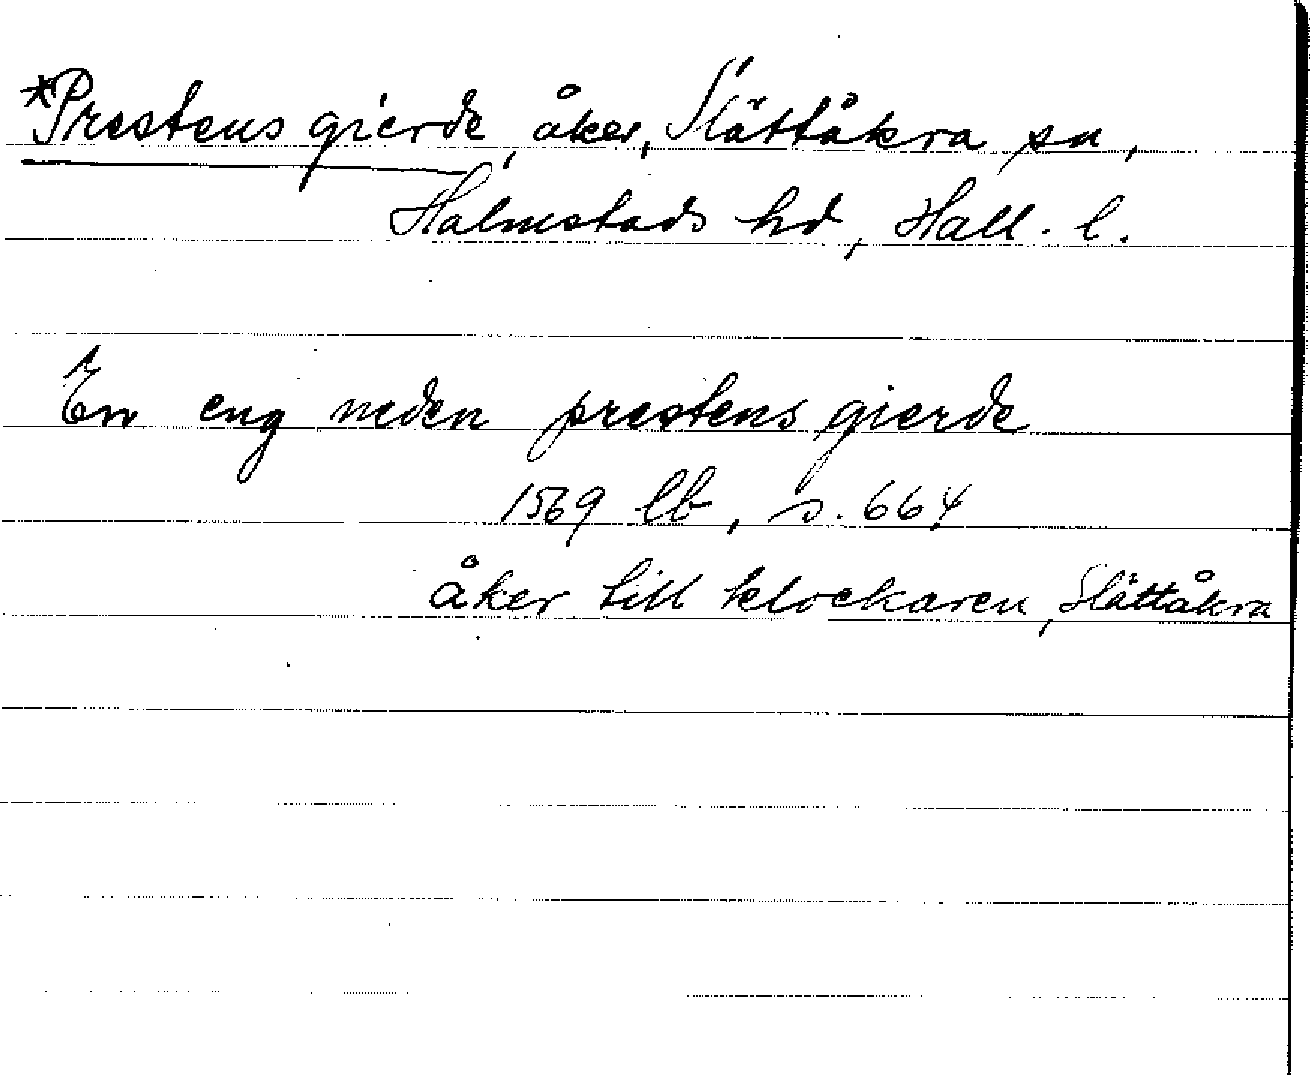 *Prestens gierde, åker, Slättåkra sn,
Halmstads hd, Hall. l.
En eng neden prestens gierde
1569 lb, s. 664
åker till klockaren, Slättåkra